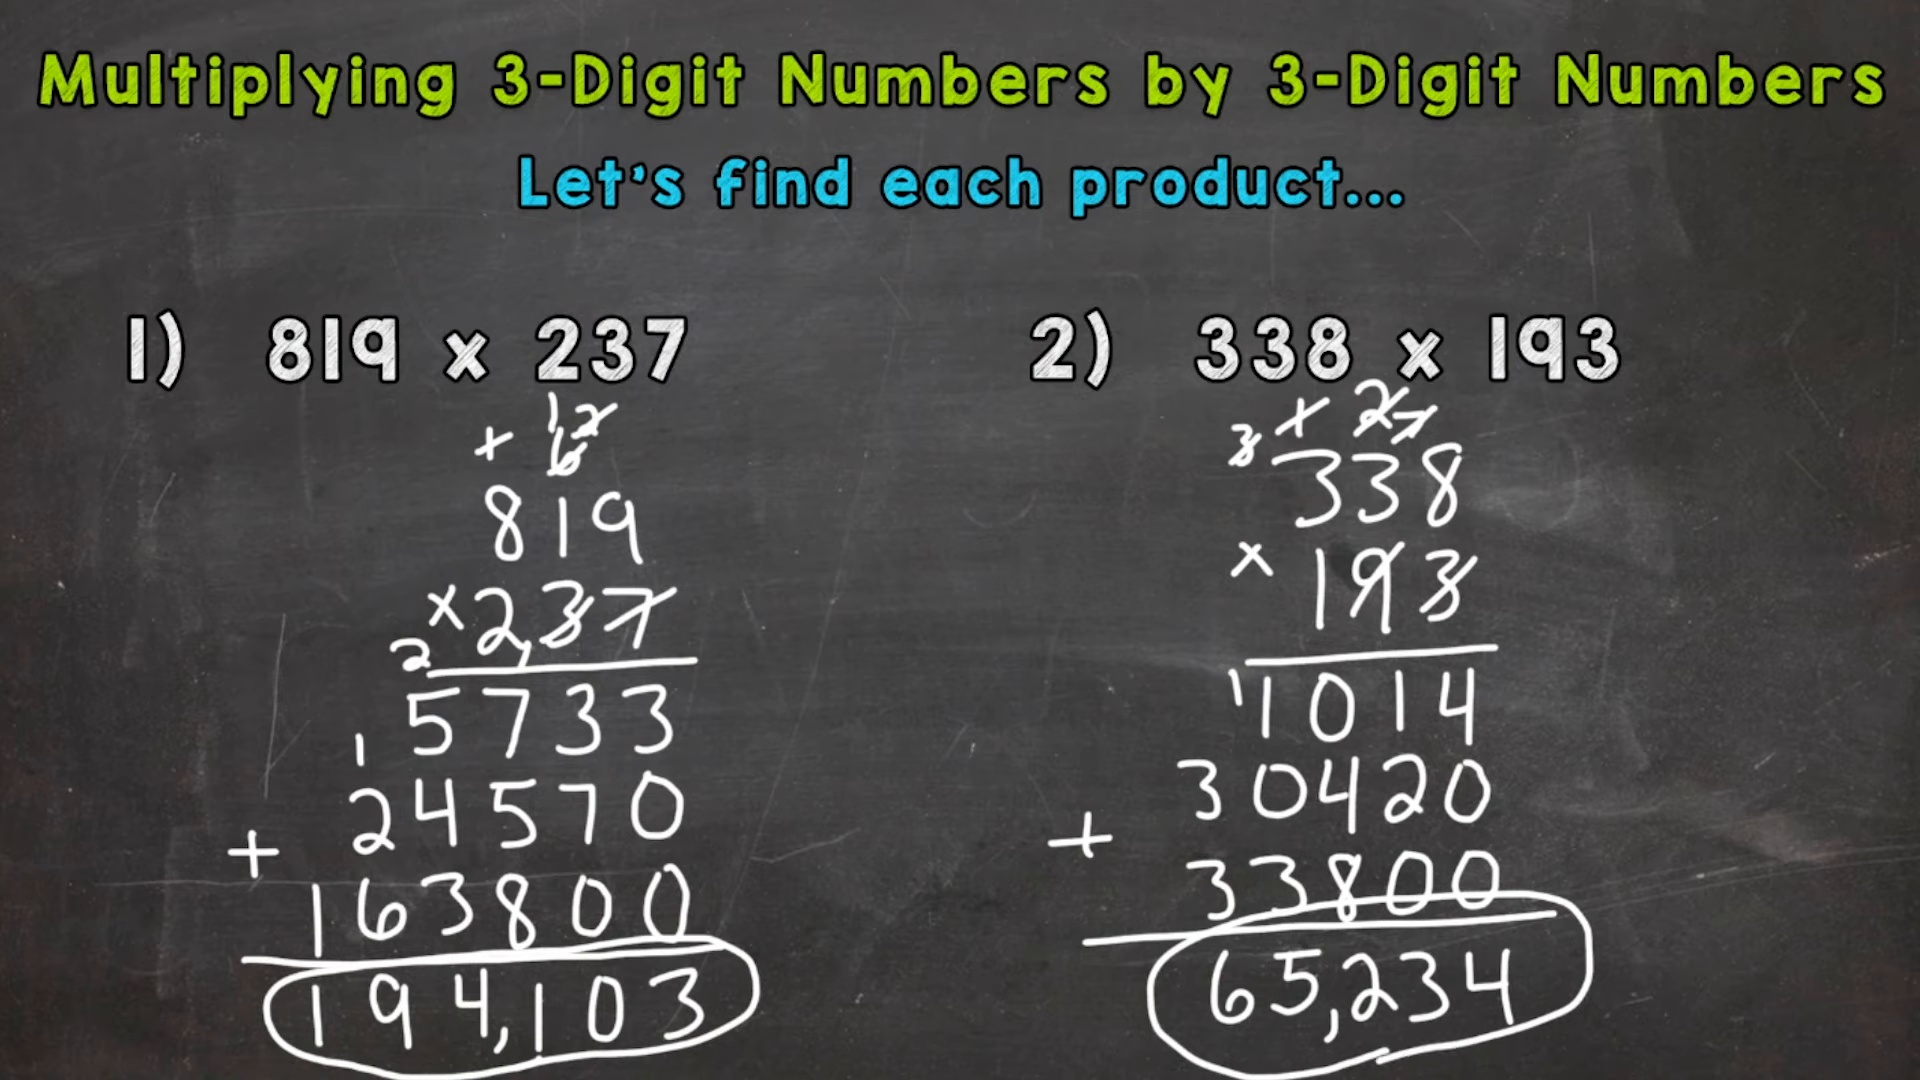 Multiplying 3-Digit Numbers by 3-Digit Numbers
Let's find each product...
1) 819 x 237
1 2
+ 6
819
x 2,37
2
5733
1
24570
+
163800
194,103
2) 338 x 193
1 2
3 7
338
x 193
1
1014
30420
+
33800
65,234